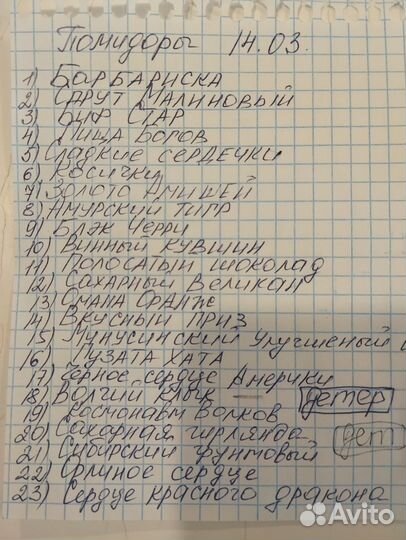 Помидоры 14.03.
1) Барбариска
2) Фрут Малиновый
3) Биф Стар
4) Пища Богов
5) Сладкие сердечки
6) Косички
7) Золото Амишей
8) Амурский тигр
9) Блэк Черри
10) Винный кувшин
11) Полосатый шоколад
12) Сахарный Великан
13) Оранж
14) Вкусный приз
15) улучшеный
16) Пузата хата
17) Черное сердце Америки
18) Волчий клык — детер
19) Космонавт Волков
20) Сахарная гирлянда дет
21) Сибирский фунтовый
22) Орлиное сердце
23) Сердце красного дракона
Avito